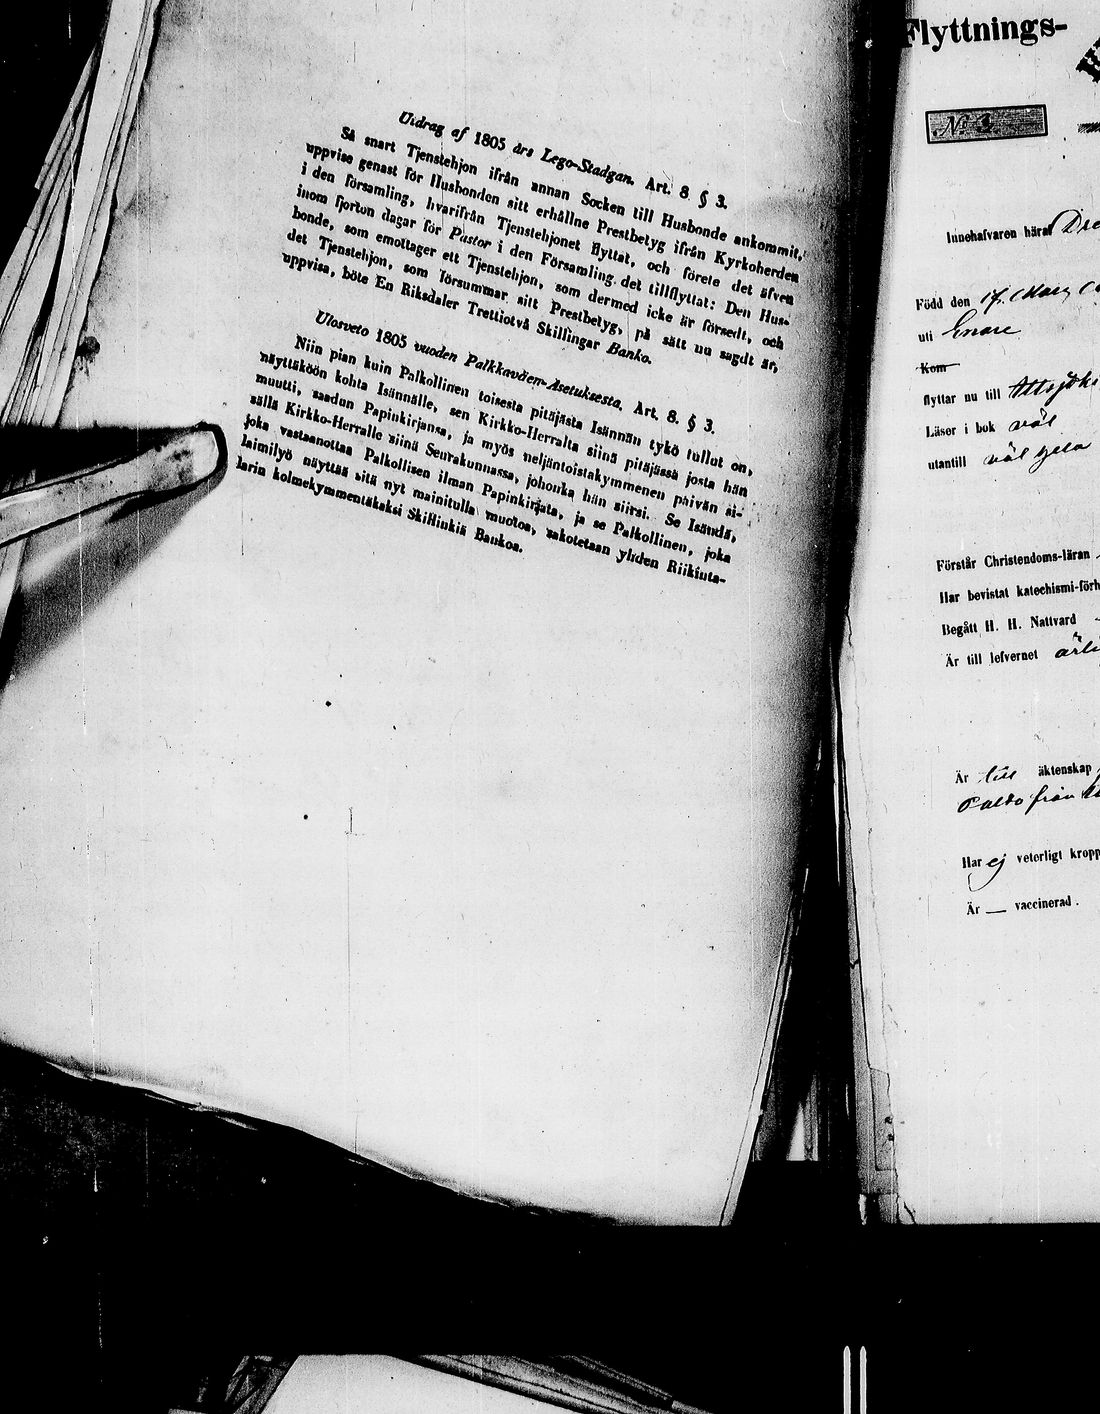 Utdrag af 1805 års Lego-Stadgan. Art. 8 § 3.
Så snart Tjenstehjon ifrån annan Socken till Husbonde ankommit,
uppvise genast för Husbonden sitt erhållne Prestbetyg ifrån Kyrkoherden
i den församling, hvarifrån Tjenstehjonet flyttat, och förete det äfven
inom fjorton dagar för Pastor i den Församling det tillflyttat: Den Hus-
bonde, som emottager ett Tjenstehjon, som dermed icke är försedt, och
det Tjenstehjon, som försummar sitt Prestbetyg, på sätt nu sagdt är,
uppvisa, böte En Riksdaler Trettiotvå Skillingar Banko.
Ulosveto 1805 vuoden Palkkaväen-Asetuksesta. Art. 8. § 3.
Niin pian kuin Palkollinen toisesta pitäjästä Isännän tykö tullut on,
näyttäköön kohta Isännälle, sen Kirkko-Herralta siinä pitäjässä josta hän
muutti, saadun Papinkirjansa, ja myös neljäntoistakymmenen päivän si-
sällä Kirkko-Herralle siinä Seurakunnassa, johonka hän siirsi. Se Isändä,
joka vastaanottaa Palkollisen ilman Papinkirjata, ja se Palkollinen, joka
laimilyö näyttää sitä nyt mainitulla muotoa, sakotetaan yhden Riikinta-
larin kolmekymmentäkaksi Skillinkiä Bankoa.
Flyttnings-
No 3
Innehafvaren häraf
Född den 17. Mars
uti Enare
Kom
flyttar nu till
Läser i bok väl
utantill väl hela
Förstår Christendoms-läran
Har bevistat katechismi-förh
Begått H. H. Nattvard
Är till lefvernet
Är till äktenskap
från
Har ej veterligt kropp
Är — vaccinerad.